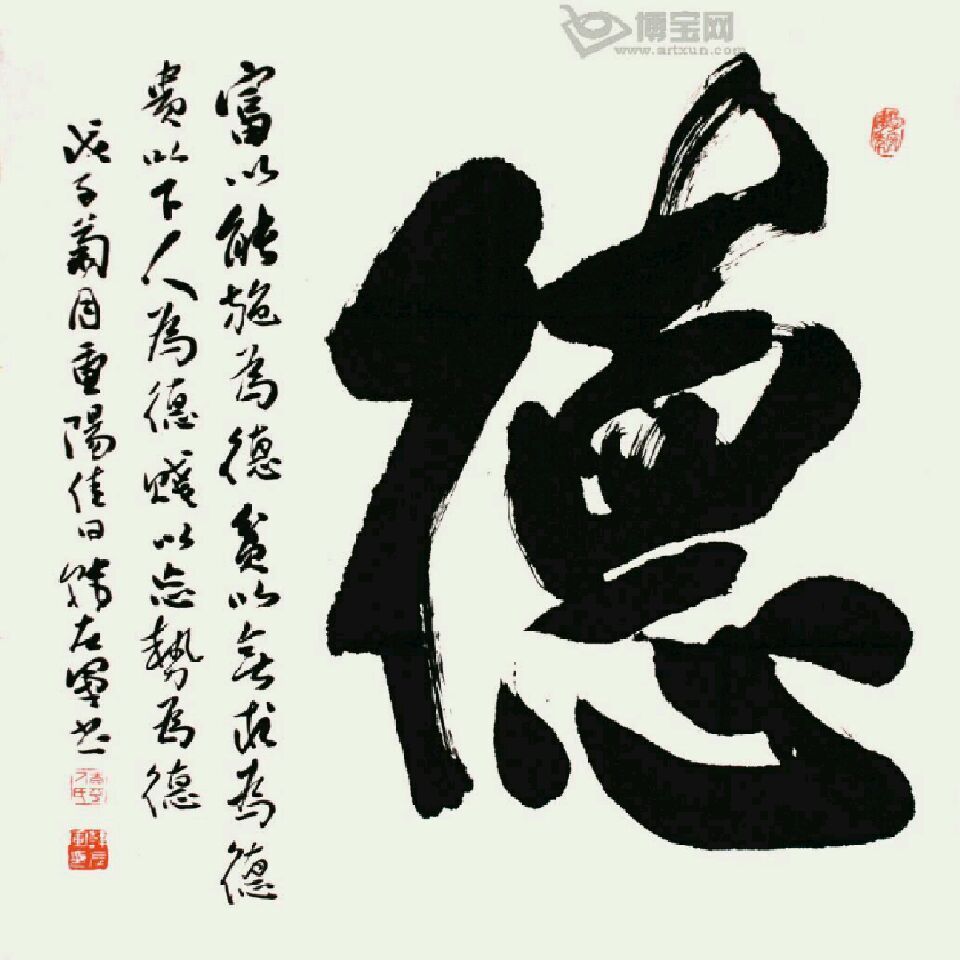 博宝网
www.artxun.com
德
富以能施為德貧以無求為德
貴以下人為德賤以忘勢為德
戊子菊月重陽佳日
書